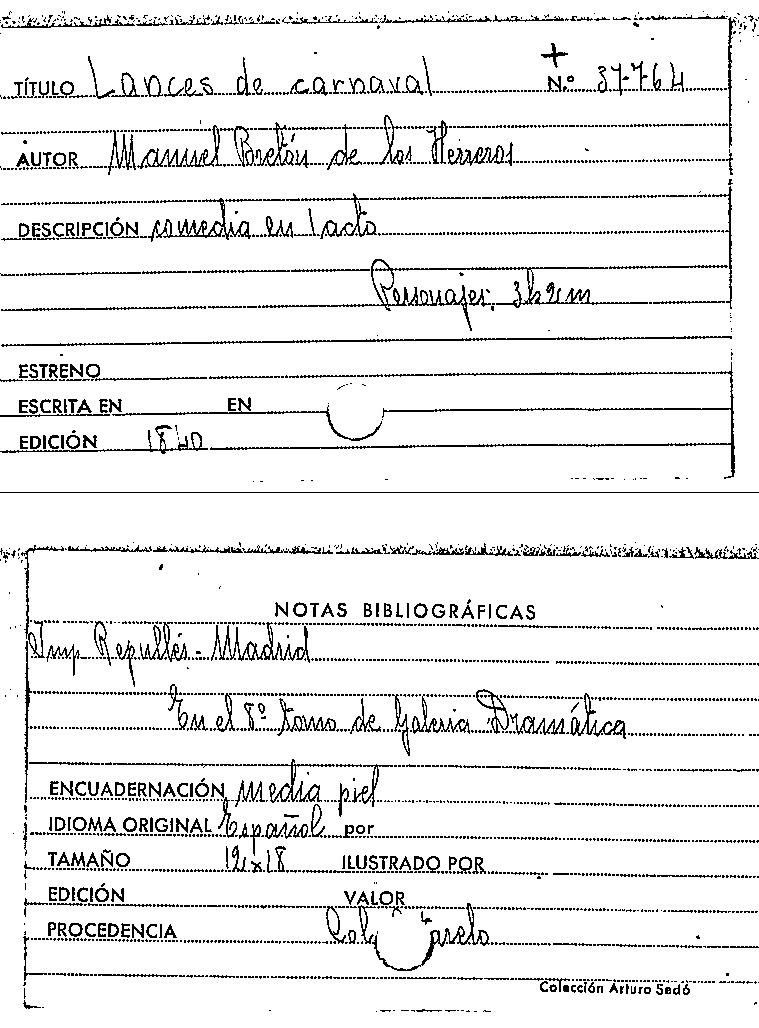 TÍTULO Lances de carnaval + N.º 37-764
AUTOR Manuel Bretón de los Herreros
DESCRIPCIÓN comedia en 1 acto
Personajes: 3h 2m
ESTRENO
ESCRITA EN EN
EDICIÓN 1840
NOTAS BIBLIOGRÁFICAS
Imp Repullés - Madrid
En el 8º tomo de Galeria Dramática
ENCUADERNACIÓN media piel
IDIOMA ORIGINAL Español por
TAMAÑO 12x18 ILUSTRADO POR
EDICIÓN VALOR
PROCEDENCIA
Colección Arturo Sedó